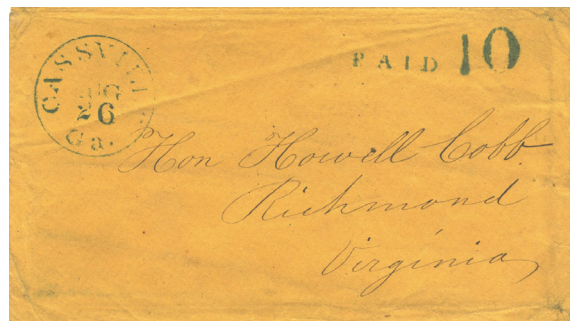 CASSVILLE
AUG
26
Ga.
PAID 10
Hon Howell Cobb
Richmond
Virginia